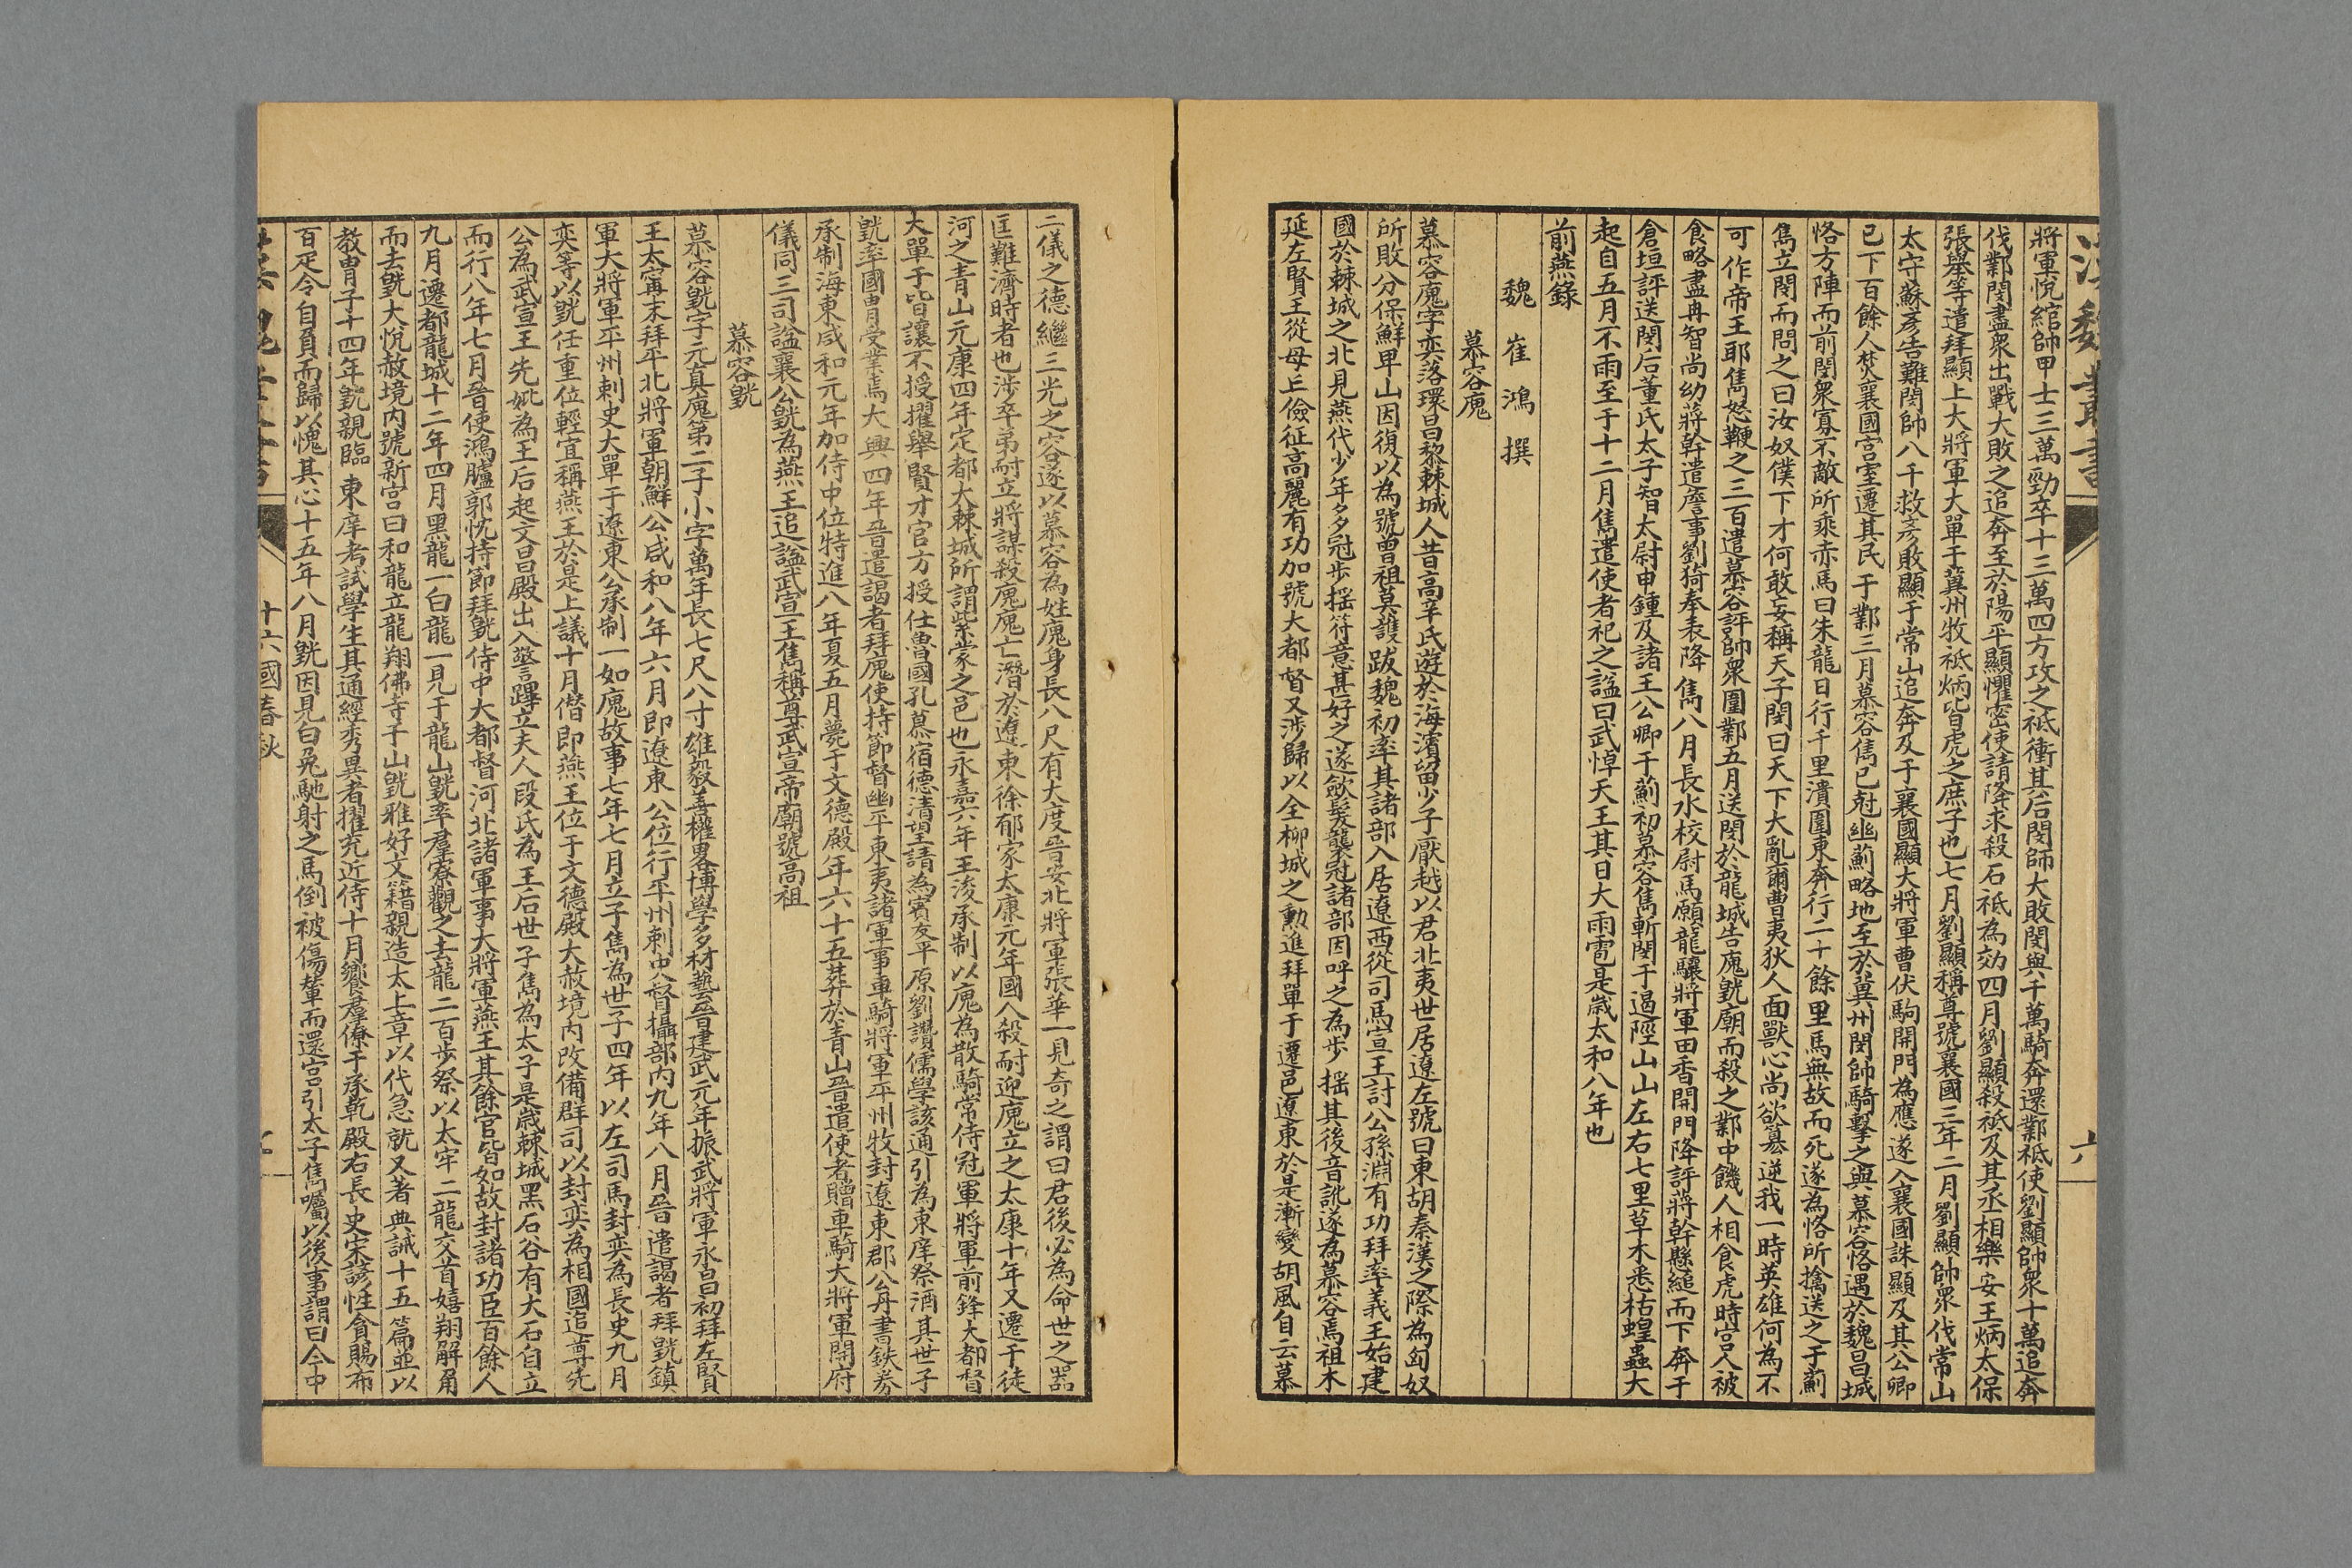 將軍悅綰帥甲士三萬勁卒十三萬四方攻之祗衝其后閔師大敗閔與千萬騎奔還鄴祗使劉顯帥衆十萬追奔
伐鄴閔盡衆出戰大敗之追奔至於陽平顯懼密使請降求殺石祗為効四月劉顯殺祗及其丞相樂安王炳太保
張舉等遣拜顯上大將軍大單于冀州牧祗炳皆虎之庶子也七月劉顯稱尊號襄國三年二月劉顯帥衆伐常山
太守蘇彥告難閔帥八千救彥敗顯于常山追奔及于襄國顯大將軍曹伏駒開門為應遂入襄國誅顯及其公卿
已下百餘人焚襄國宮室遷其民于鄴三月慕容雋已尅幽薊略地至於冀州閔帥騎擊之與慕容恪遇於魏昌城
恪方陣而前閔衆寡不敵所乘赤馬曰朱龍日行千里潰圍東奔行二十餘里馬無故而死遂為恪所擒送之于薊
雋立閔而問之曰汝奴僕下才何敢妄稱天子閔曰天下大亂爾曹夷狄人面獸心尚欲簒逆我一時英雄何為不
可作帝王耶雋怒鞭之三百遣慕容評帥衆圍鄴五月送閔於龍城告廆皝廟而殺之鄴中饑人相食虎時宮人被
食略盡冉智尚幼蔣幹遣詹事劉猗奉表降雋八月長水校尉馬願龍驤將軍田香開門降評蔣幹懸縋而下奔于
倉垣評送閔后董氏太子智太尉申鍾及諸王公卿于薊初慕容雋斬閔于遏陘山山左右七里草木悉枯蝗蟲大
起自五月不雨至于十二月雋遣使者祀之諡曰武悼天王其日大雨雹是歲太和八年也
前燕錄
魏崔鴻撰
慕容廆
慕容廆字奕洛環昌黎棘城人昔高辛氏遊於海濱留少子厭越以君北夷世居遼左號曰東胡秦漢之際為匈奴
所敗分保鮮卑山因復以為號曾祖莫護跋魏初率其諸部入居遼西從司馬宣王討公孫淵有功拜率義王始建
國於棘城之北見燕代少年多冠步揺符意甚好之遂歛髮襲冠諸部因呼之為步揺其後音訛遂為慕容焉祖木
延左賢王從母丘儉征高麗有功加號大都督又涉歸以全柳城之勲進拜單于遷邑遼東於是漸變胡風自云慕
二儀之德繼三光之容遂以慕容為姓廆身長八尺有大度晉安北將軍張華一見奇之謂曰君後必為命世之器
匡難濟時者也涉卒弟耐立將謀殺廆廆亡潛於遼東徐郁家太康元年國人殺耐迎廆立之太康十年又遷于徒
河之青山元康四年定都大棘城所謂紫蒙之邑也永嘉六年王浚承制以廆為散騎常侍冠軍將軍前鋒大都督
大單于皆讓不授擢舉賢才官方授仕魯國孔慕宿德清望請為賓友平原劉讚儒學該通引為東庠祭酒其世子
皝率國冑受業焉大興四年晉遣謁者拜廆使持節督幽平東夷諸軍事車騎將軍平州牧封遼東郡公丹書鉄券
承制海東咸和元年加侍中位特進八年夏五月薨于文德殿年六十五葬於青山晉遣使者贈車騎大將軍開府
儀同三司諡襄公皝為燕王追諡武宣王雋稱尊武宣帝廟號高祖
慕容皝
慕容皝字元真廆第二子小字萬年長七尺八寸雄毅善權畧博學多材藝晉建武元年振武將軍永昌初拜左賢
王太寧末拜平北將軍朝鮮公咸和八年六月即遼東公位行平州刺史督攝部內九年八月晉遣謁者拜皝鎮
軍大將軍平州刺史大單于遼東公承制一如廆故事七年七月立子雋為世子四年以左司馬封奕為長史九月
奕等以皝任重位輕宜稱燕王於是上議十月僭即燕王位于文德殿大赦境內改備群司以封奕為相國追尊先
公為武宣王先妣為王后起文昌殿出入警蹕立夫人段氏為王后世子雋為太子是歲棘城黑石谷有大石自立
而行八年七月晉使鴻臚郭忱持節拜皝侍中大都督河北諸軍事大將軍燕王其餘官皆如故封諸功臣百餘人
九月遷都龍城十二年四月黑龍一白龍一見于龍山皝率羣寮觀之去龍二百步祭以太牢二龍交首嬉翔解角
而去皝大悅赦境內號新宮曰和龍立龍翔佛寺于山皝雅好文籍親造太上章以代急就又著典誡十五篇並以
教冑子十四年皝親臨東庠考試學生其通經秀異者擢充近侍十月饗羣僚于承乾殿右長史宋諺性貪賜布
百疋令自負而歸以愧其心十五年八月皝因見白兔馳射之馬倒被傷輦而還宮引太子雋囑以後事謂曰今中
十六國春秋
六